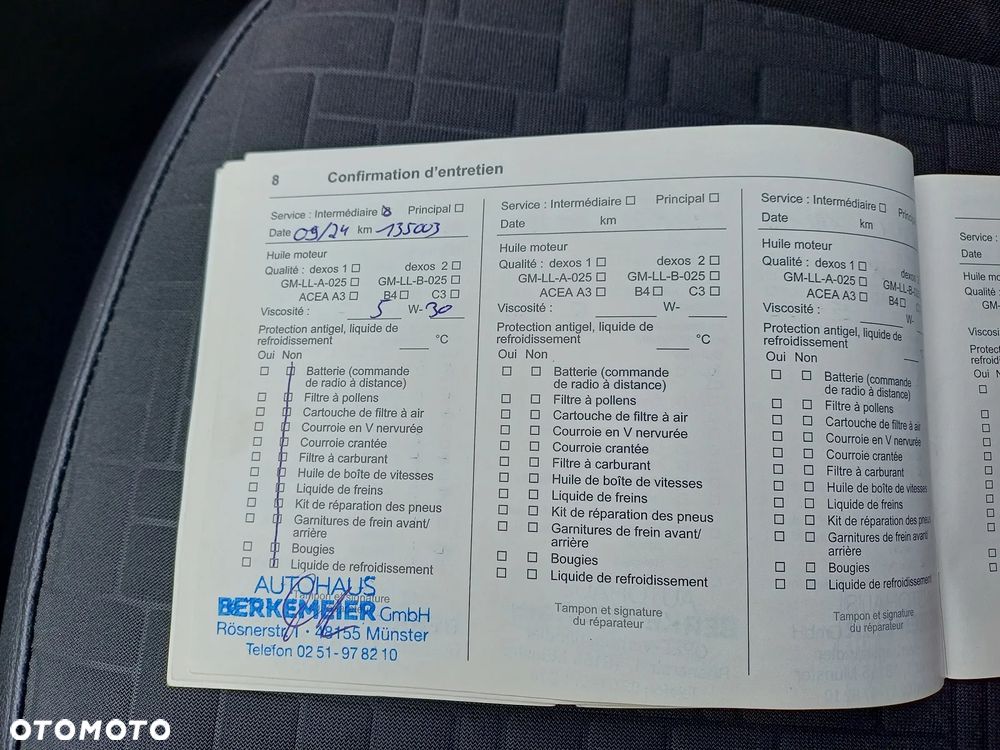 8 Confirmation d'entretien
Service : Intermédiaire ☒ Principal ☐
Date 09/24 km 135003
Huile moteur
Qualité : dexos 1 ☐ dexos 2 ☐
GM-LL-A-025 ☐ GM-LL-B-025 ☐
ACEA A3 ☐ B4 ☐ C3 ☐
Viscosité : 5 W- 30
Protection antigel, liquide de
refroidissement °C
Oui Non
☐ ☐ Batterie (commande
de radio à distance)
☐ ☐ Filtre à pollens
☐ ☐ Cartouche de filtre à air
☐ ☐ Courroie en V nervurée
☐ ☐ Courroie crantée
☐ ☐ Filtre à carburant
☐ ☐ Huile de boîte de vitesses
☐ ☐ Liquide de freins
☐ ☐ Kit de réparation des pneus
☐ ☐ Garnitures de frein avant/
arrière
☐ ☐ Bougies
☐ ☐ Liquide de refroidissement
Tampon et signature
AUTOHAUS
BERKEMEIER GmbH
Rösnerstr. 1 · 48155 Münster
Telefon 02 51 - 97 82 10
Service : Intermédiaire ☐ Principal ☐
Date km
Huile moteur
Qualité : dexos 1 ☐ dexos 2 ☐
GM-LL-A-025 ☐ GM-LL-B-025 ☐
ACEA A3 ☐ B4 ☐ C3 ☐
Viscosité : W-
Protection antigel, liquide de
refroidissement °C
Oui Non
☐ ☐ Batterie (commande
de radio à distance)
☐ ☐ Filtre à pollens
☐ ☐ Cartouche de filtre à air
☐ ☐ Courroie en V nervurée
☐ ☐ Courroie crantée
☐ ☐ Filtre à carburant
☐ ☐ Huile de boîte de vitesses
☐ ☐ Liquide de freins
☐ ☐ Kit de réparation des pneus
☐ ☐ Garnitures de frein avant/
arrière
☐ ☐ Bougies
☐ ☐ Liquide de refroidissement
Tampon et signature
du réparateur
Service : Intermédiaire ☐ Princip
Date km
Huile moteur
Qualité : dexos 1 ☐ dexos
GM-LL-A-025 ☐ GM-LL-B-02
ACEA A3 ☐ B4 ☐
Viscosité : W-
Protection antigel, liquide de
refroidissement
Oui Non
☐ ☐ Batterie (commande
de radio à distance)
☐ ☐ Filtre à pollens
☐ ☐ Cartouche de filtre à air
☐ ☐ Courroie en V nervurée
☐ ☐ Courroie crantée
☐ ☐ Filtre à carburant
☐ ☐ Huile de boîte de vitesses
☐ ☐ Liquide de freins
☐ ☐ Kit de réparation des pneus
☐ ☐ Garnitures de frein avant/
arrière
☐ ☐ Bougies
☐ ☐ Liquide de refroidissement
Tampon et signature
du réparateur
Service :
Date
Huile mo
Qualité :
GM-
Viscosité
Protect
refroid
Oui N
OTOMOTO